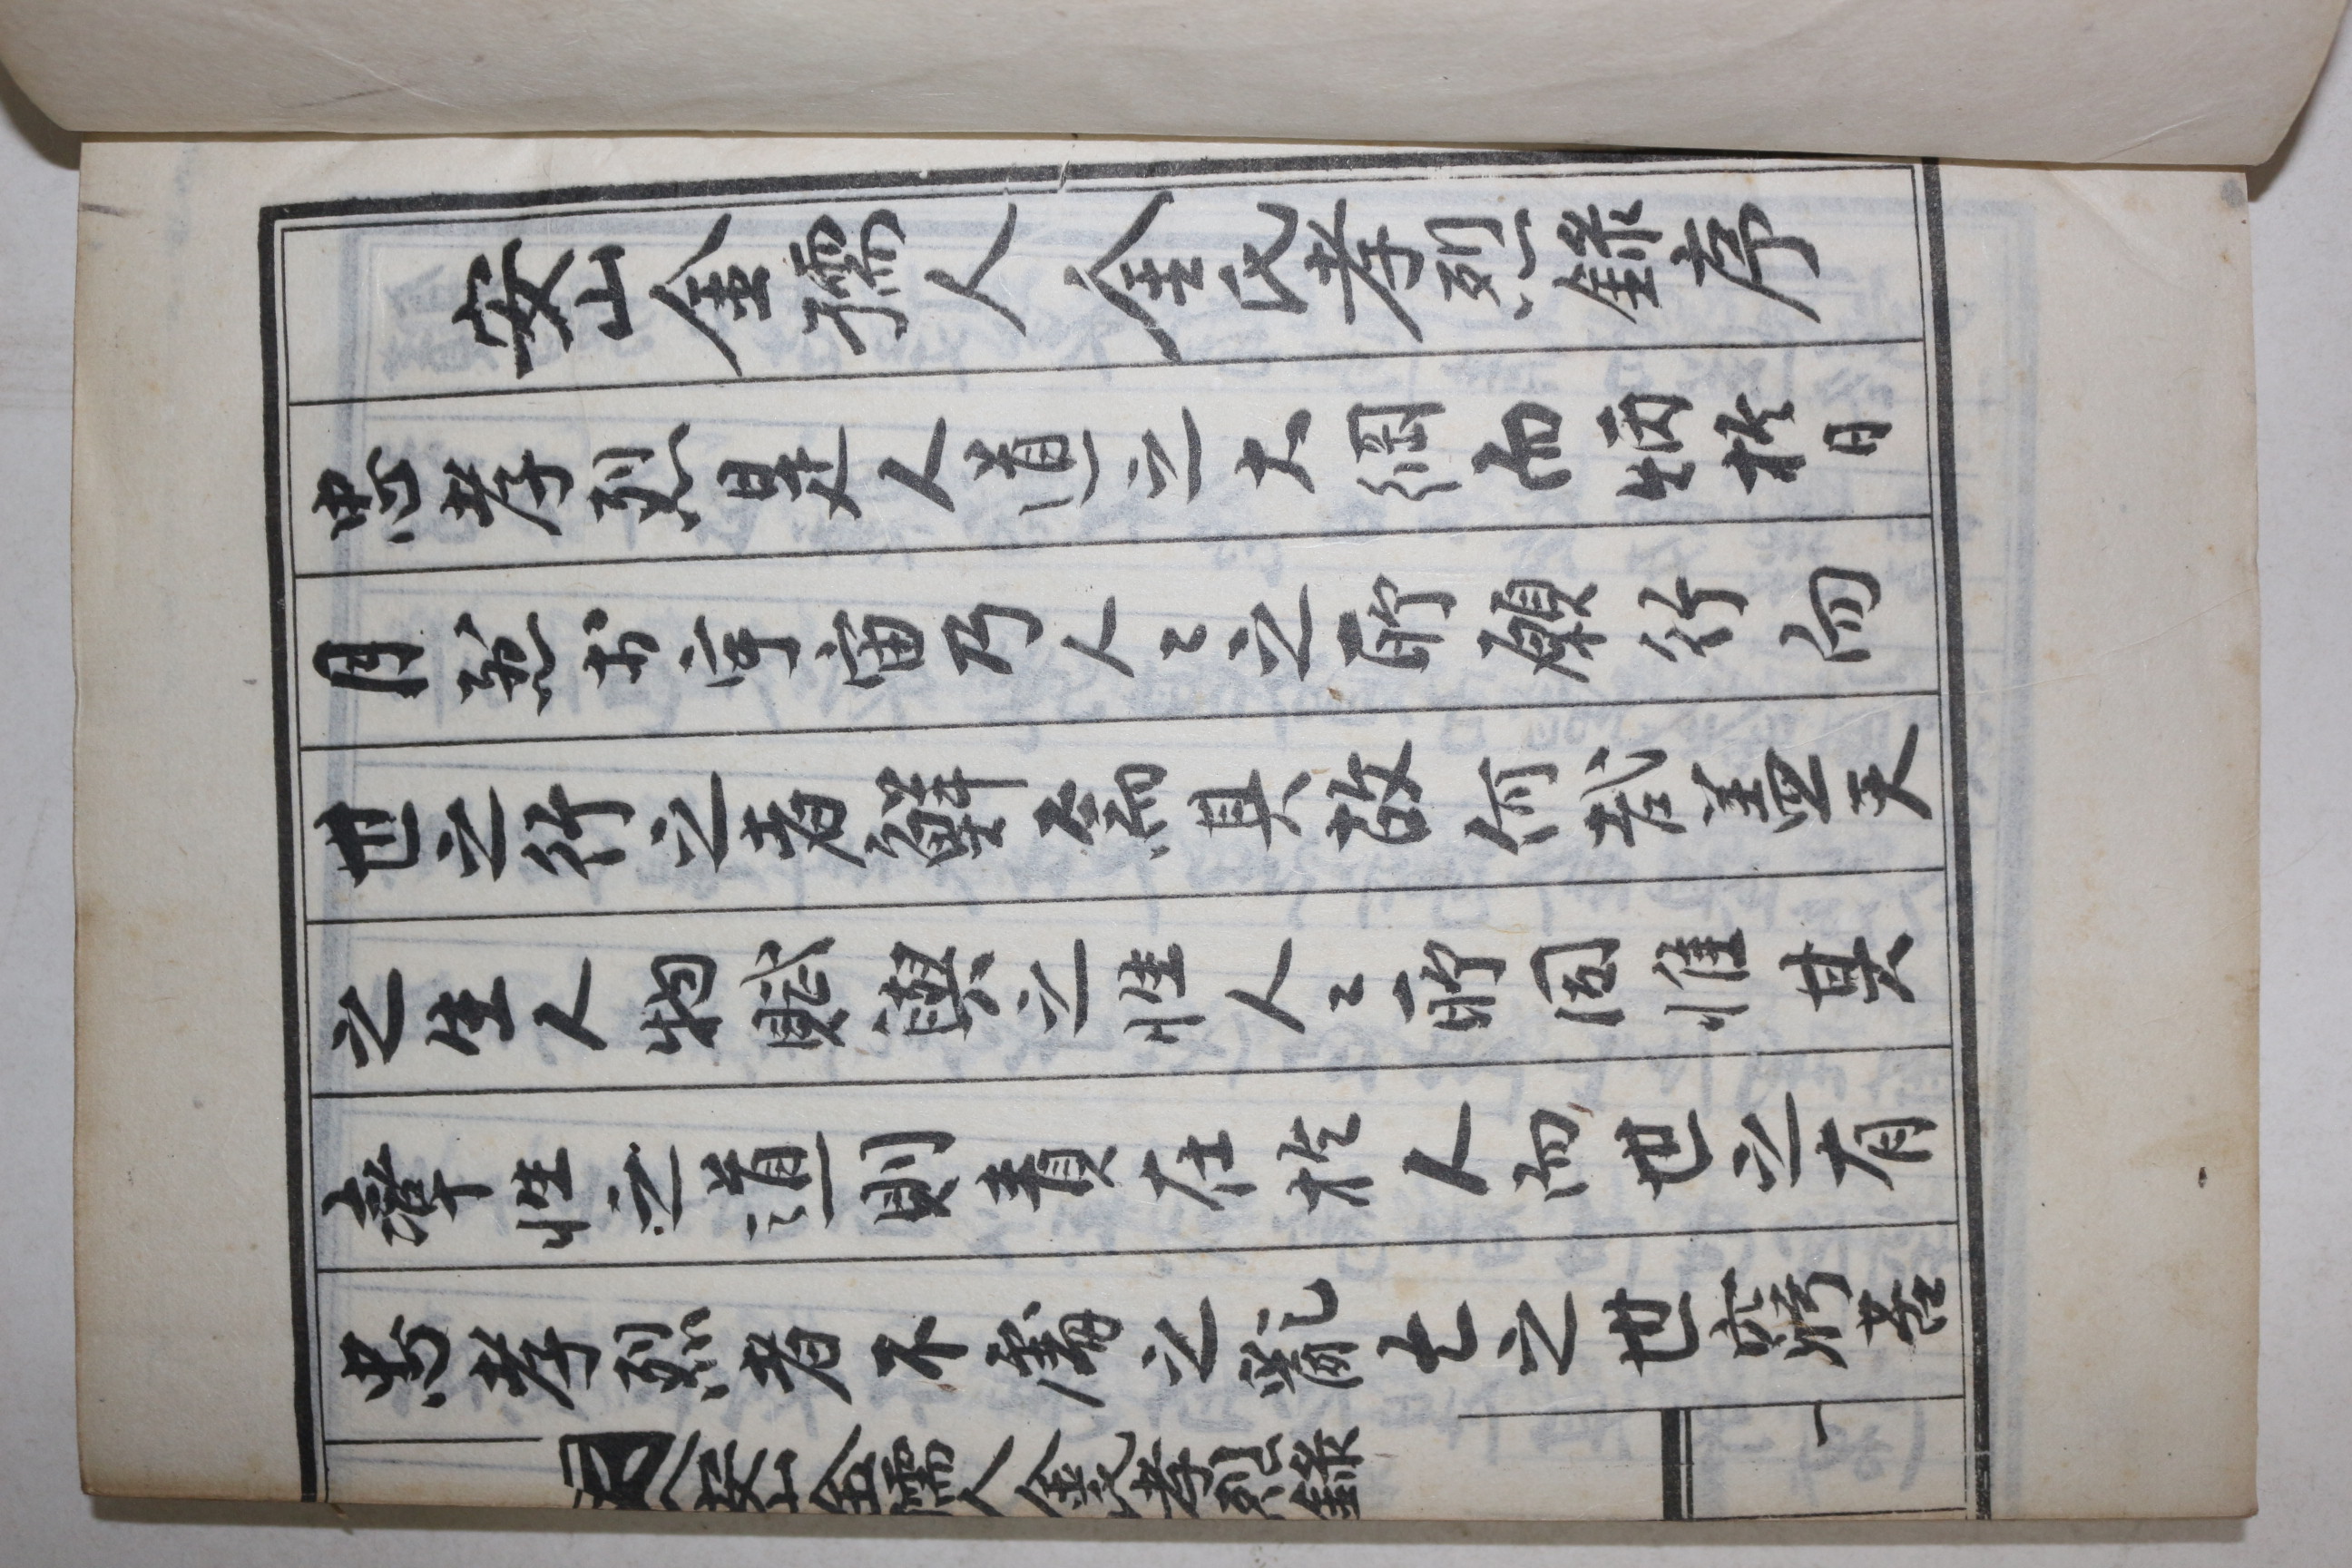 安山金孺人金氏孝烈錄序
忠孝烈是人道之大綱而炳於日
月於宇宙乃人〻之所願行而
世之行之者鮮焉其故何哉盖天
之生人物賦與之性人〻所固惟其
率性之道則責在於人而世之有
忠孝烈者不屬之亂亡之世窮苦
安山金孺人金氏孝烈錄
一